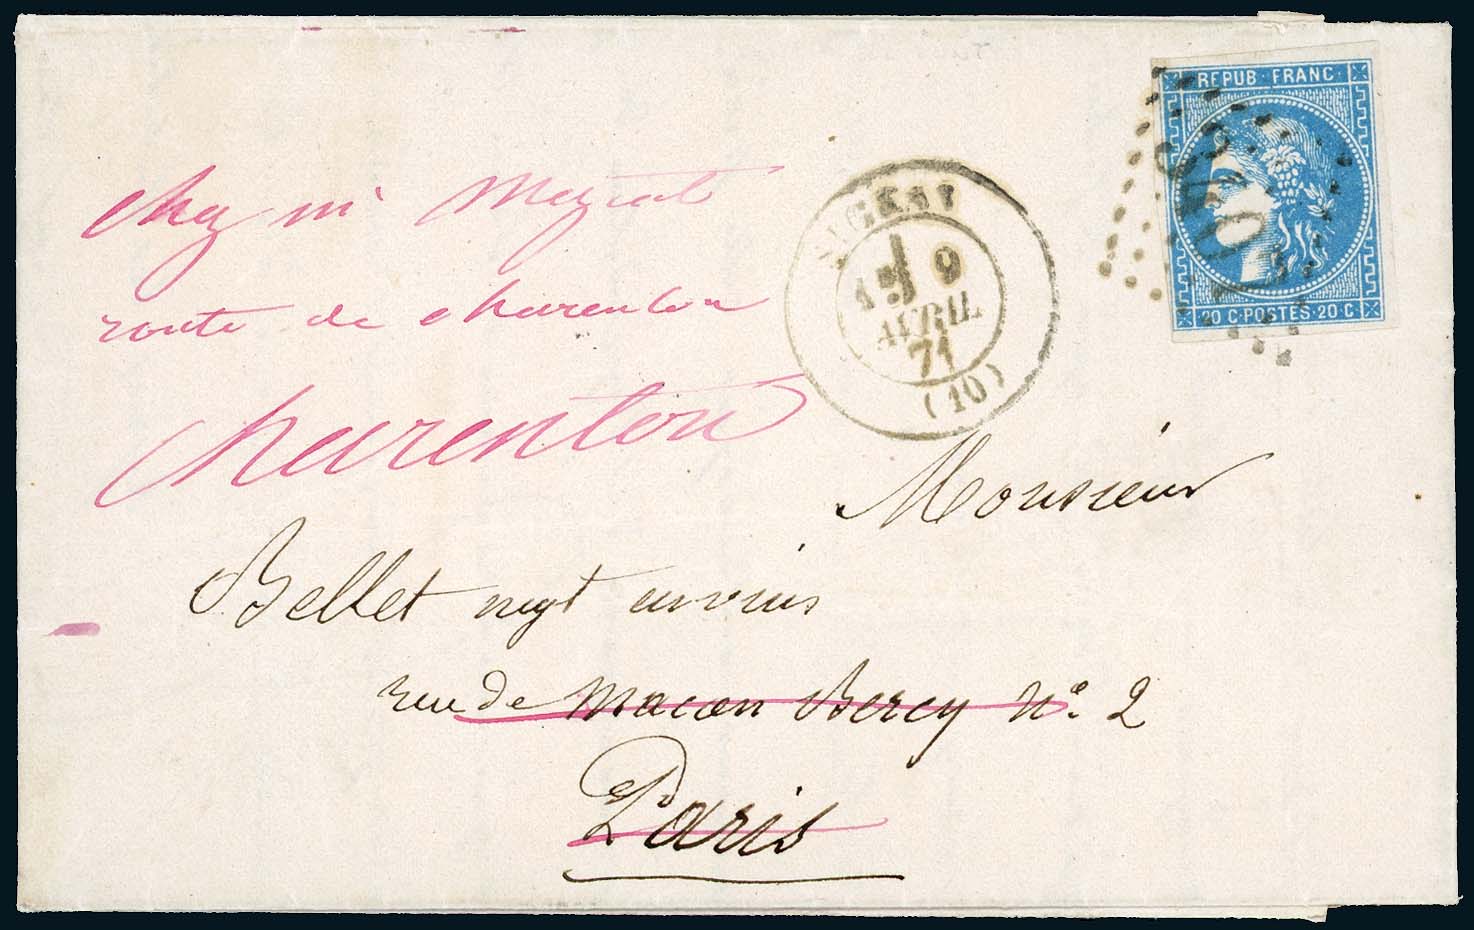 REPUB · FRANC
20 C · POSTES · 20 C
9
AVRIL
71
(10)
chez mr
route de charenton
charenton
Monsieur
Bellet negt en vins
rue de Macon Bercy No. 2
Paris